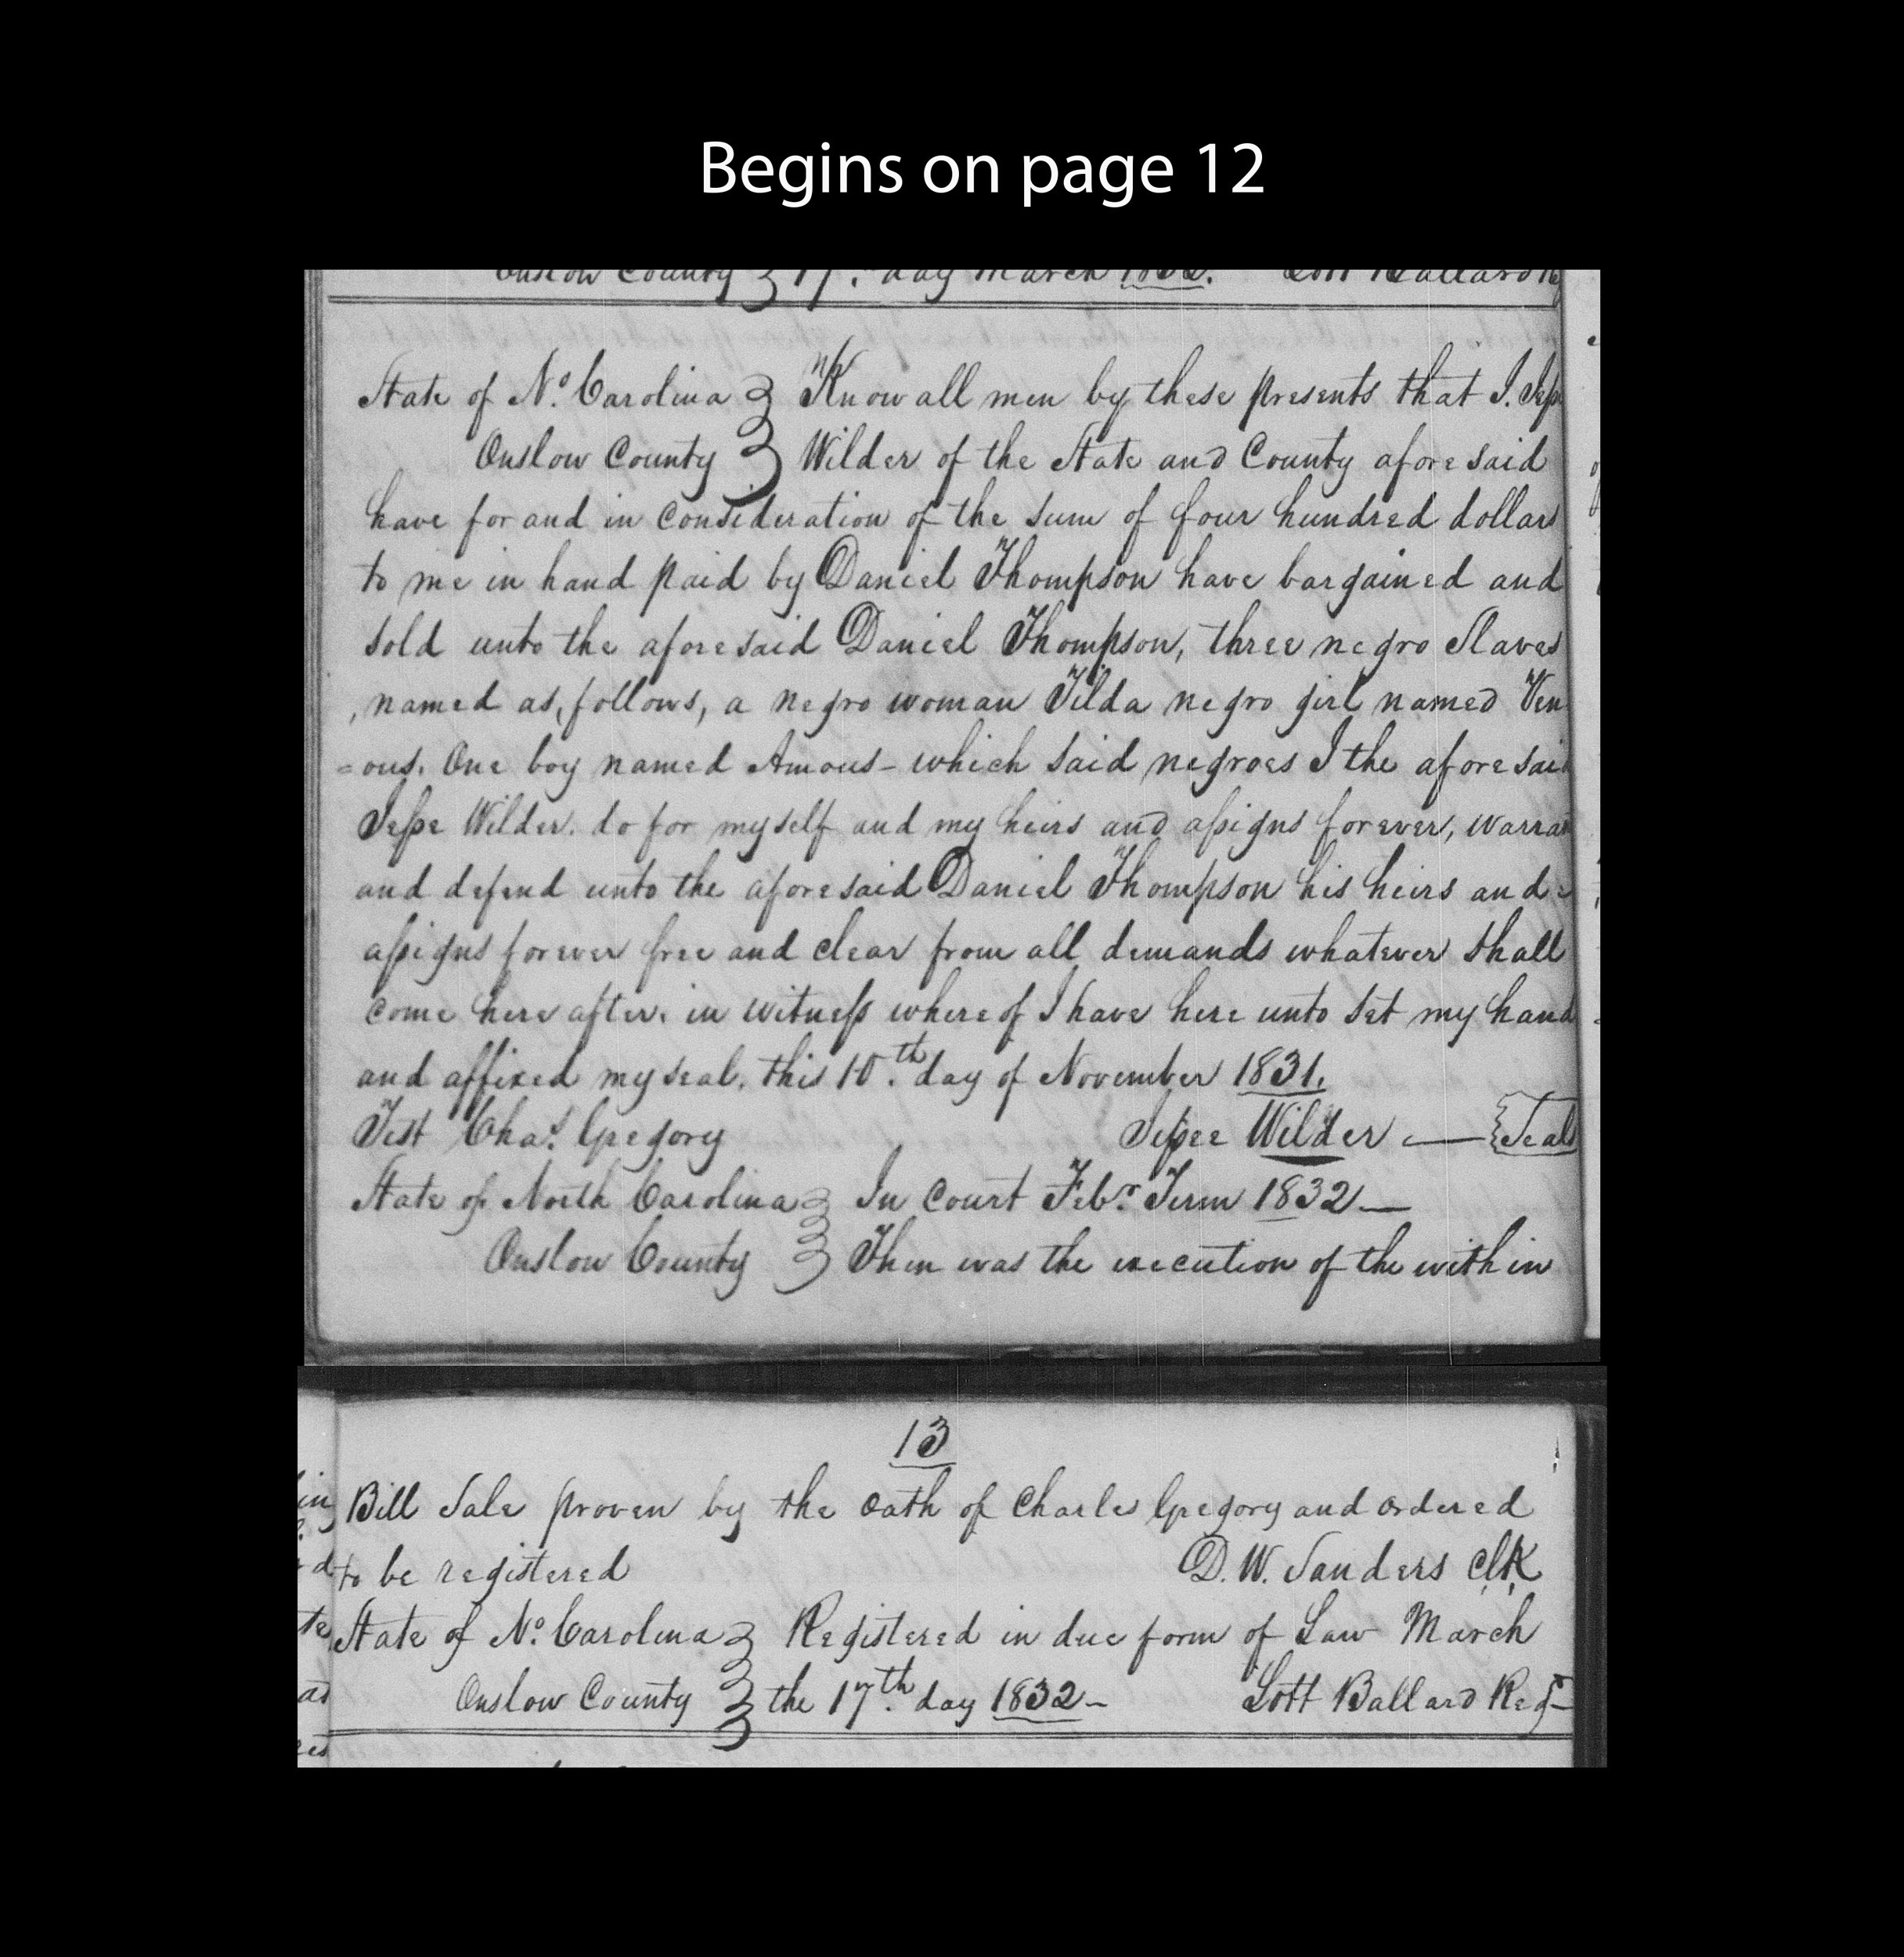 Begins on page 12
Onslow County 17th day March 1832. Lott Ballard Reg
State of No. Carolina Know all men by these presents that I. Jesse
Onslow County Wilder of the State and County afore said
have for and in Consideration of the sum of four hundred dollars
to me in hand paid by Daniel Thompson have bargained and
sold unto the afore said Daniel Thompson, three negro Slaves
, named as, follows, a negro woman Tilda negro girl named Ven
=ous. One boy named Amous - which said negroes I the afore said
Jesse Wilder. do for my self and my heirs and assigns forever, warran
and defend unto the afore said Daniel Thompson his heirs and =
assigns forever free and clear from all demands whatever shall
come here after. in witness where of I have here unto set my hand
and affixed my seal. this 10.th day of November 1831.
Test Chas. Gregory Jessee Wilder — Seal
State of North Carolina In Court Febr. Term 1832 —
Onslow County Then was the execution of the with in
13
Bill Sale proven by the oath of Charles Gregory and ordered
to be registered D. W. Sanders Clk
State of No. Carolina Registered in due form of Law March
Onslow County the 17th. day 1832 - Lott Ballard Regr